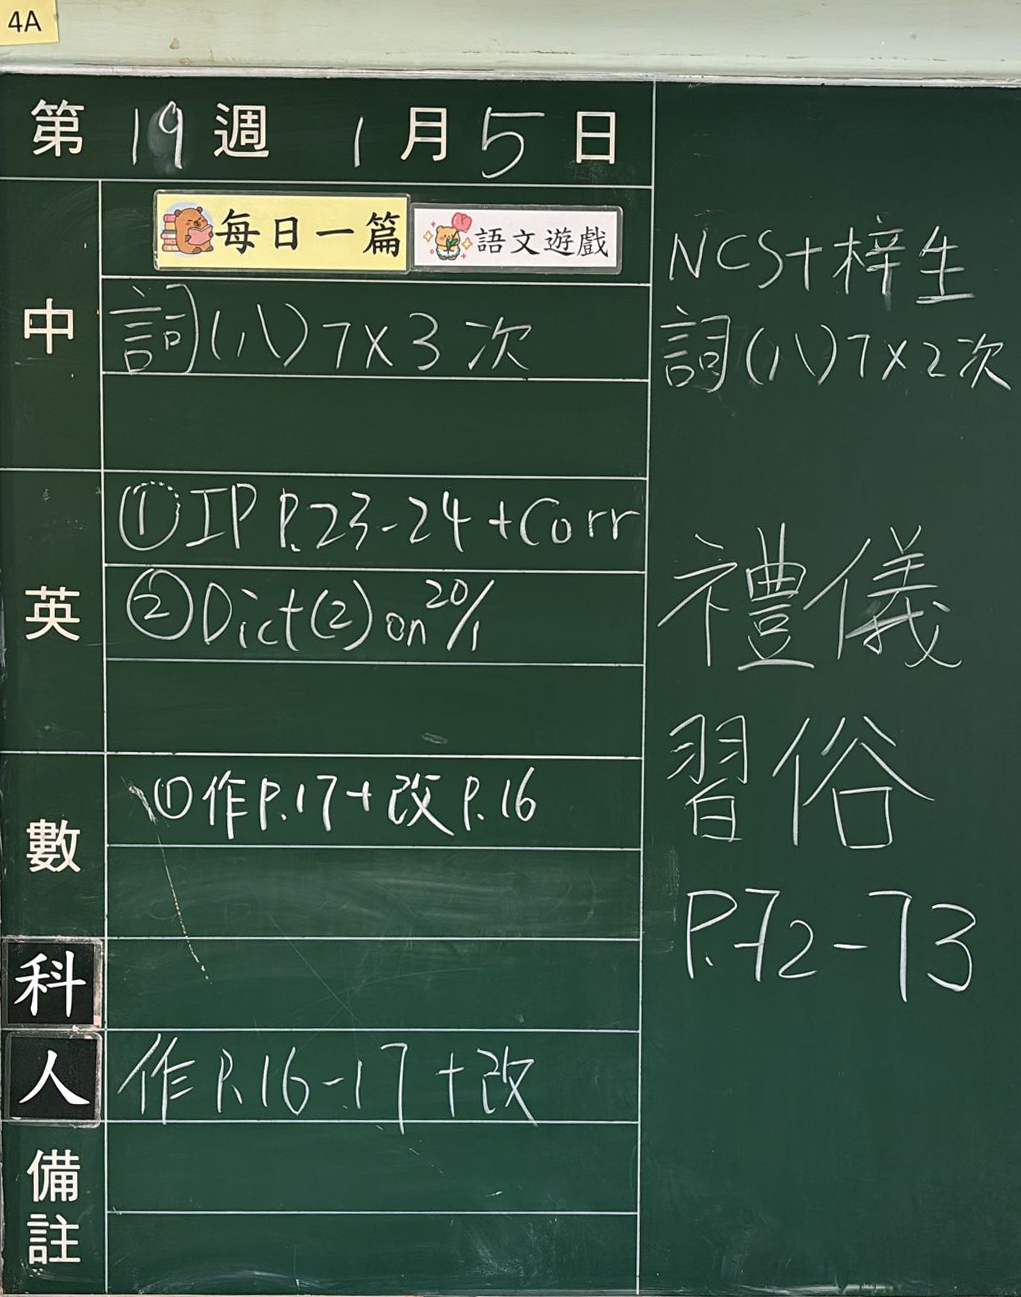 4A
第19週 1月5日
中
每日一篇 語文遊戲
詞(八)7×3次
英
①IP P.23-24+Corr
②Dict(2) on 20/1
數
①作P.17+改P.16
科
人
作P.16-17+改
備註
NCS+梓生
詞(八)7×2次
禮儀
習俗
P.72-73